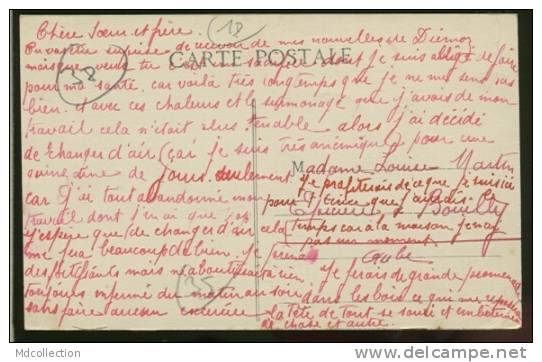 18
38
Chère Sœur et frère.
On va être surprise de recevoir de mes nouvelles de Diémoz
CARTE POSTALE
mais que veux tu c'est dont je suis obligé de faire
pour ma santé. car voila très longtemps que je ne me sens pas
bien. et avec ces chaleurs et le surmenage que j'avais de mon
travail cela n'était plus tenable alors j'ai décidé
de changer d'air (car je suis très anémique) pour une
quinzaine de jours seulement
Madame Louise Martin
car j'ai tout abandonné mon
je profiterais de ce que je suis ici
pour t'écrire que j'aurais
Épicerie Bouilly
travail dont j'en ai que
j'espère que de changer d'air cela
temps car à la maison j'en ai
pas un moment
me fera beaucoup de bien. Je prends
Aube
des fortifiants mais n'aboutissant à rien.
Je ferais de grande promenade
toujours enfermé du matin au soir
dans les bois ce qui me reposera
sans faire aucun exercice
la tête de tout se souci et embêtement
35
de chose et autre.
MCollection
www.delcampe.net